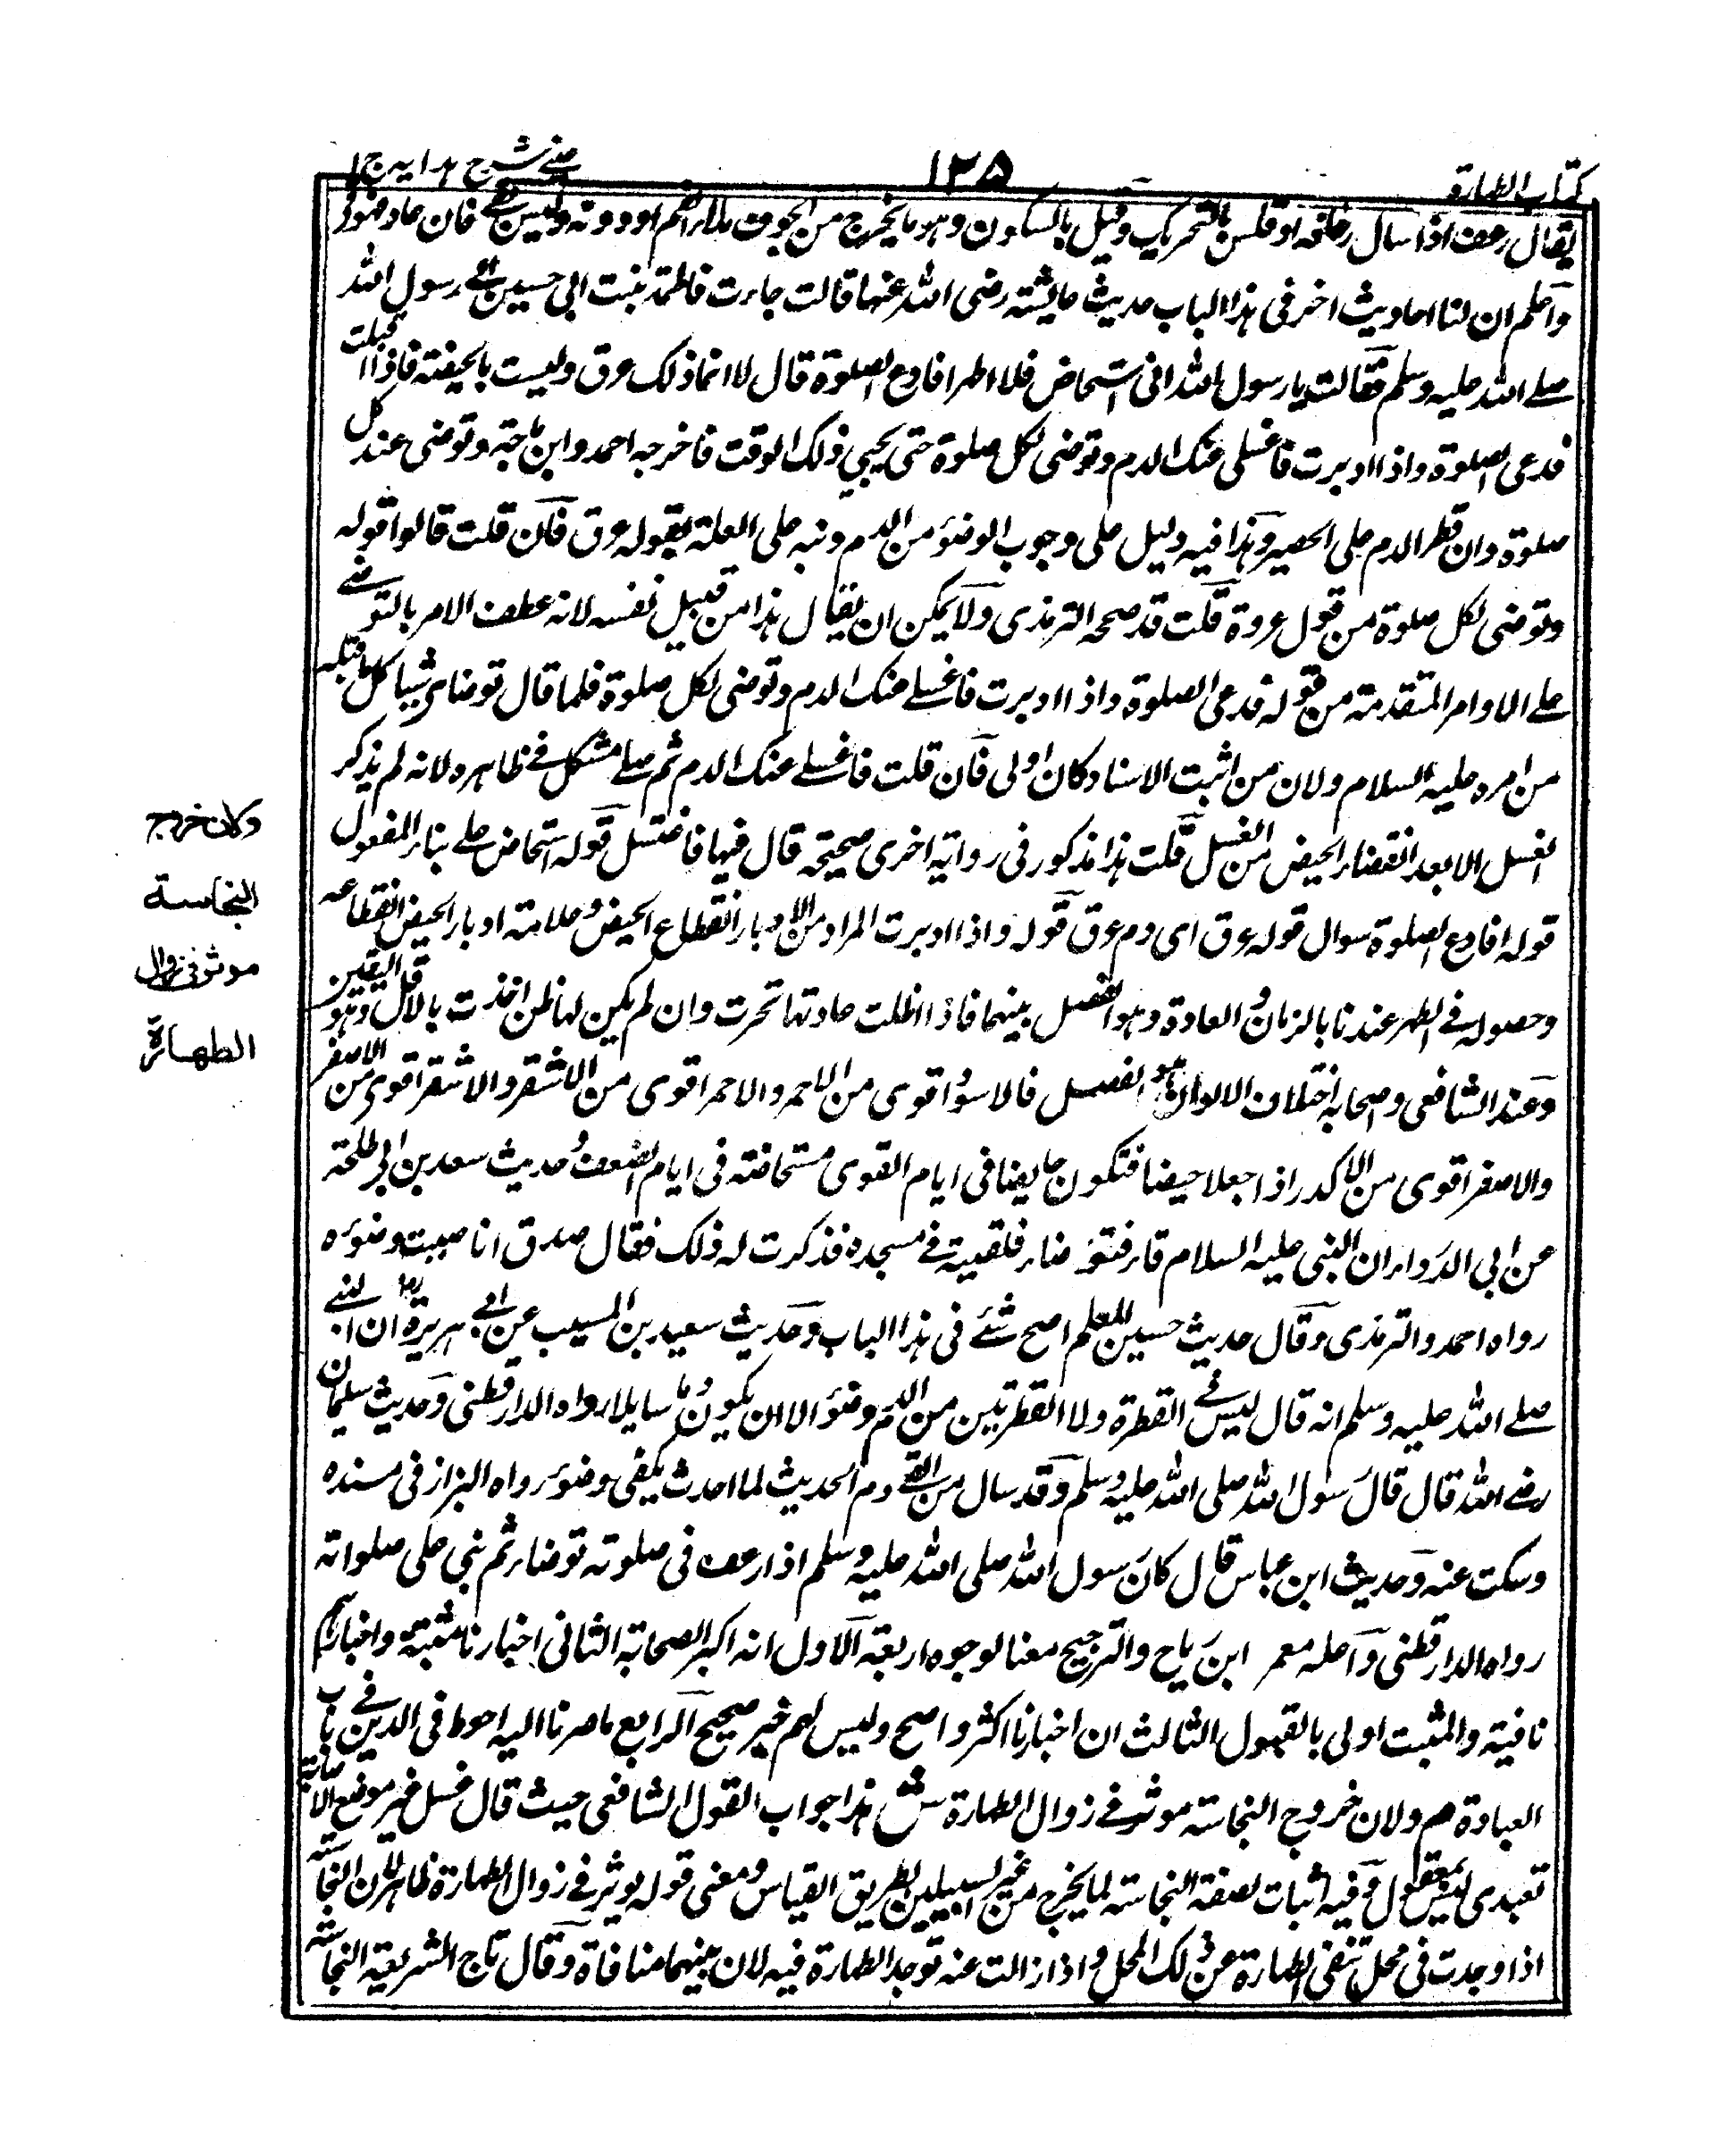 كتاب الطهارة
١٢٥
عيني شرح هدايه ج ١
يقال رعف اذا سال رعافه او قلس بالتحريك وقيل بالسكون وهو ما يخرج من الجوف ملاء الفم او دونه وليس بقئ فان عاد فهو قئ
واعلم ان لنا احاديث اخر فى هذا الباب حديث عايشة رضى الله عنها قالت جاءت فاطمة بنت ابى حسين الى رسول الله
صلے الله عليه وسلم فقالت يا رسول الله انى استحاض فلا اطهر افادع الصلوة قال لا انما ذلك عرق وليست بالحيضة فاذا اقبلت
فدعى الصلوة واذا ادبرت فاغسلى عنك الدم وتوضى لكل صلوة حتى يجيى ذلك الوقت فاخرجه احمد وابن ماجة وتوضى عند كل
صلوة وان قطر الدم على الحصير وهذا فيه دليل على وجوب الوضوء من الدم ونبه على العلة بقوله عرق فان قلت قالوا قوله
وتوضى لكل صلوة من قول عروة قلت قد صححه الترمذى ولا يمكن ان يقال هذا من قبيل نفسه لانه عطف الامر بالتوضے
علے الاوامر المتقدمة من قوله فدعى الصلوة واذا ادبرت فاغسلے عنك الدم وتوضى لكل صلوة فلما قال توضاى شيا كل ما قبله
من امره عليه السلام ولان من اثبت الاسناد كان اولى فان قلت فاغسلے عنك الدم ثم صلے مشكل فے ظاهره لانه لم يذكر
الغسل الا بعد انقضاء الحيض من الغسل قلت هذا مذكور فى رواية اخرى صحيحة قال فيها فاغتسل قوله استحاض علے بناء المفعول
قوله افادع الصلوة سوال قوله عرق اى دم عرق قوله واذا ادبرت المراد من الادبار انقطاع الحيض وعلامة ادبار الحيض انقطاعه
وحصوله فے الطهر عندنا بالزمان والعادة وهو الفصل بينهما فاذا اظلت عادتها تحرت وان لم يكن لها ظن اخذت بالاقل وهو اليقين
وعند الشافعى واصحابه اختلاف الالوان هو الفصل فالاسود اقوى من الاحمر والاحمر اقوى من الاشقر والاشقر اقوى من الاصفر
والاصفر اقوى من الاكدر اذا جعلا حيضا فتكون حايضا فى ايام القوى مستحاضة فى ايام الضعف وحديث سعد بن ابى طلحة
عن ابى الدرداء ان النبى عليه السلام قاء فتوضاء فلقيت فے مسجده فذكرت له ذلك فقال صدق انا صببت وضوءه
رواه احمد والترمذى وقال حديث حسين المعلم اصح شئے فى هذا الباب وحديث سعيد بن المسيب عن ابے هريرة رض ان النبے
صلے الله عليه وسلم انه قال ليس فے القطرة ولا القطرتين من الدم وضوء الا ان يكون دما سايلا رواه الدارقطنى وحديث سلمان
رضے الله قال قال رسول الله صلى الله عليه وسلم وقد سال من انفے دم الحديث لما احدث يكفى وضوء رواه البزاز فى مسنده
وسكت عنه وحديث ابن عباس قال كان رسول الله صلى الله عليه وسلم اذا رعف فى صلوته توضاء ثم بنى على صلواته
رواه الدارقطنى واعله معمر ابن رياح والترجيح معنا لوجوه اربعة الاول انه اكبر الصحابة الثانى اخبارنا مثبتة واخبارهم
نافية والمثبت اولى بالقبول الثالث ان اخبارنا اكثر واصح وليس لهم خبر صحيح الرابع ما صرنا اليه احوط فى الدين فے باب
العبادة م ولان خروج النجاسة موثر فے زوال الطهارة ش هذا جواب القول الشافعى حيث قال غسل غير موضع الاصابة
تعبدى ليس بمعقول وفيه اثبات لصفة النجاسة لما يخرج من غير السبيلين بطريق القياس ومعنى قوله يوثر فے زوال الطهارة ظاهر لان النجاسة
اذا وجدت فى محل تنفى الطهارة عن ذلك المحل واذا زالت عنه توجد الطهارة فيه لان بينهما منافاة وقال تاج الشريعة النجاسة
وكان خروج
النجاسة
موثر فى زوال
الطهارة